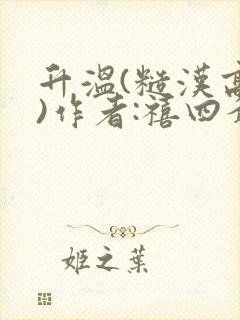 升温(糙漢高
)作者:禧四
姬之葉